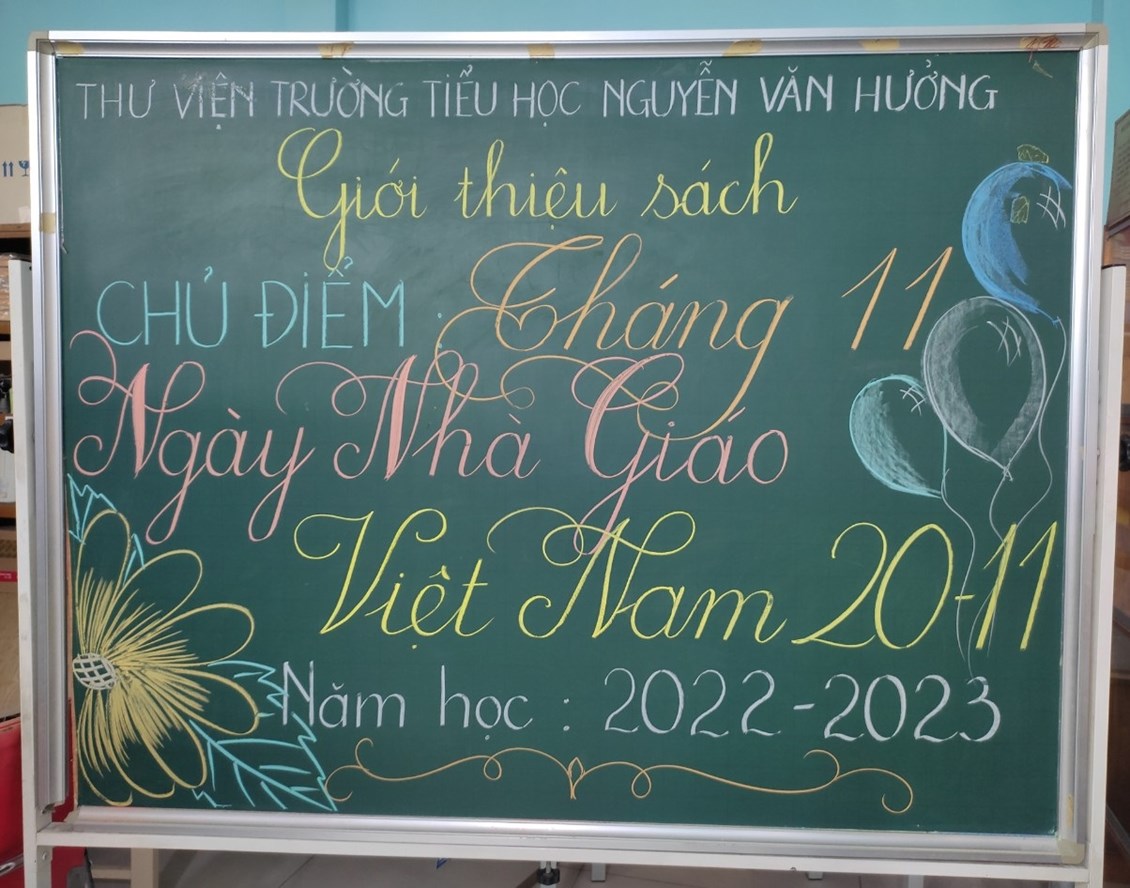 THƯ VIỆN TRƯỜNG TIỂU HỌC NGUYỄN VĂN HƯỞNG
Giới thiệu sách
CHỦ ĐIỂM : Tháng 11
Ngày Nhà Giáo
Việt Nam 20-11
Năm học : 2022-2023